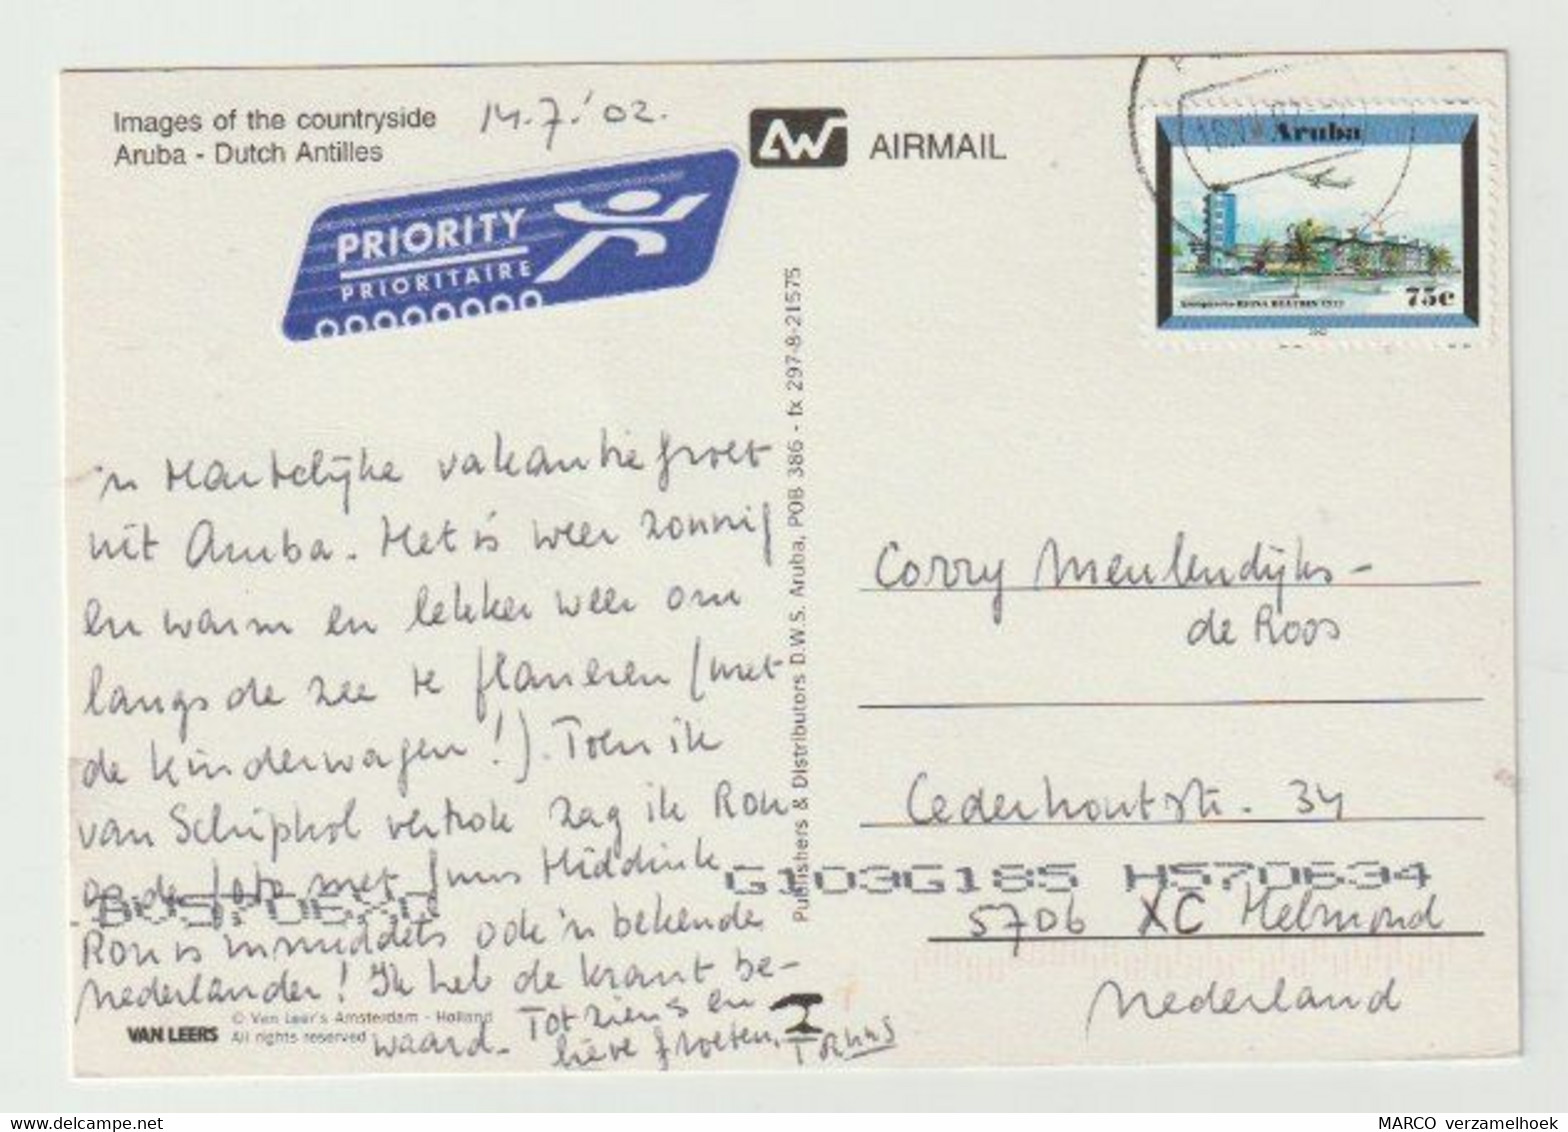 Images of the countryside
Aruba - Dutch Antilles
14.7.'02.
AIRMAIL
PRIORITY
PRIORITAIRE
Aruba
75c
'n Hartelijke vakantiegroet
uit Aruba. Het is weer zonnig
en warm en lekker weer om
langs de zee te flaneren (met
de kinderwagen!). Toen ik
van Schiphol vertrok zag ik Ron
op de foto met Guus Hiddink
Ron is inmiddels ook 'n bekende
Nederlander! Ik heb de krant be-
waard. Tot ziens en
lieve groeten,
VAN LEERS
© Van Leer's Amsterdam - Holland
All rights reserved
Publishers & Distributors D.W.S. Aruba, POB 386 - fx 297-8-21575
Corry Meulendijks-
de Roos
Cederhoutstr. 34
G103G185 H570634
5706 XC Helmond
Nederland
MARCO verzamelhoek